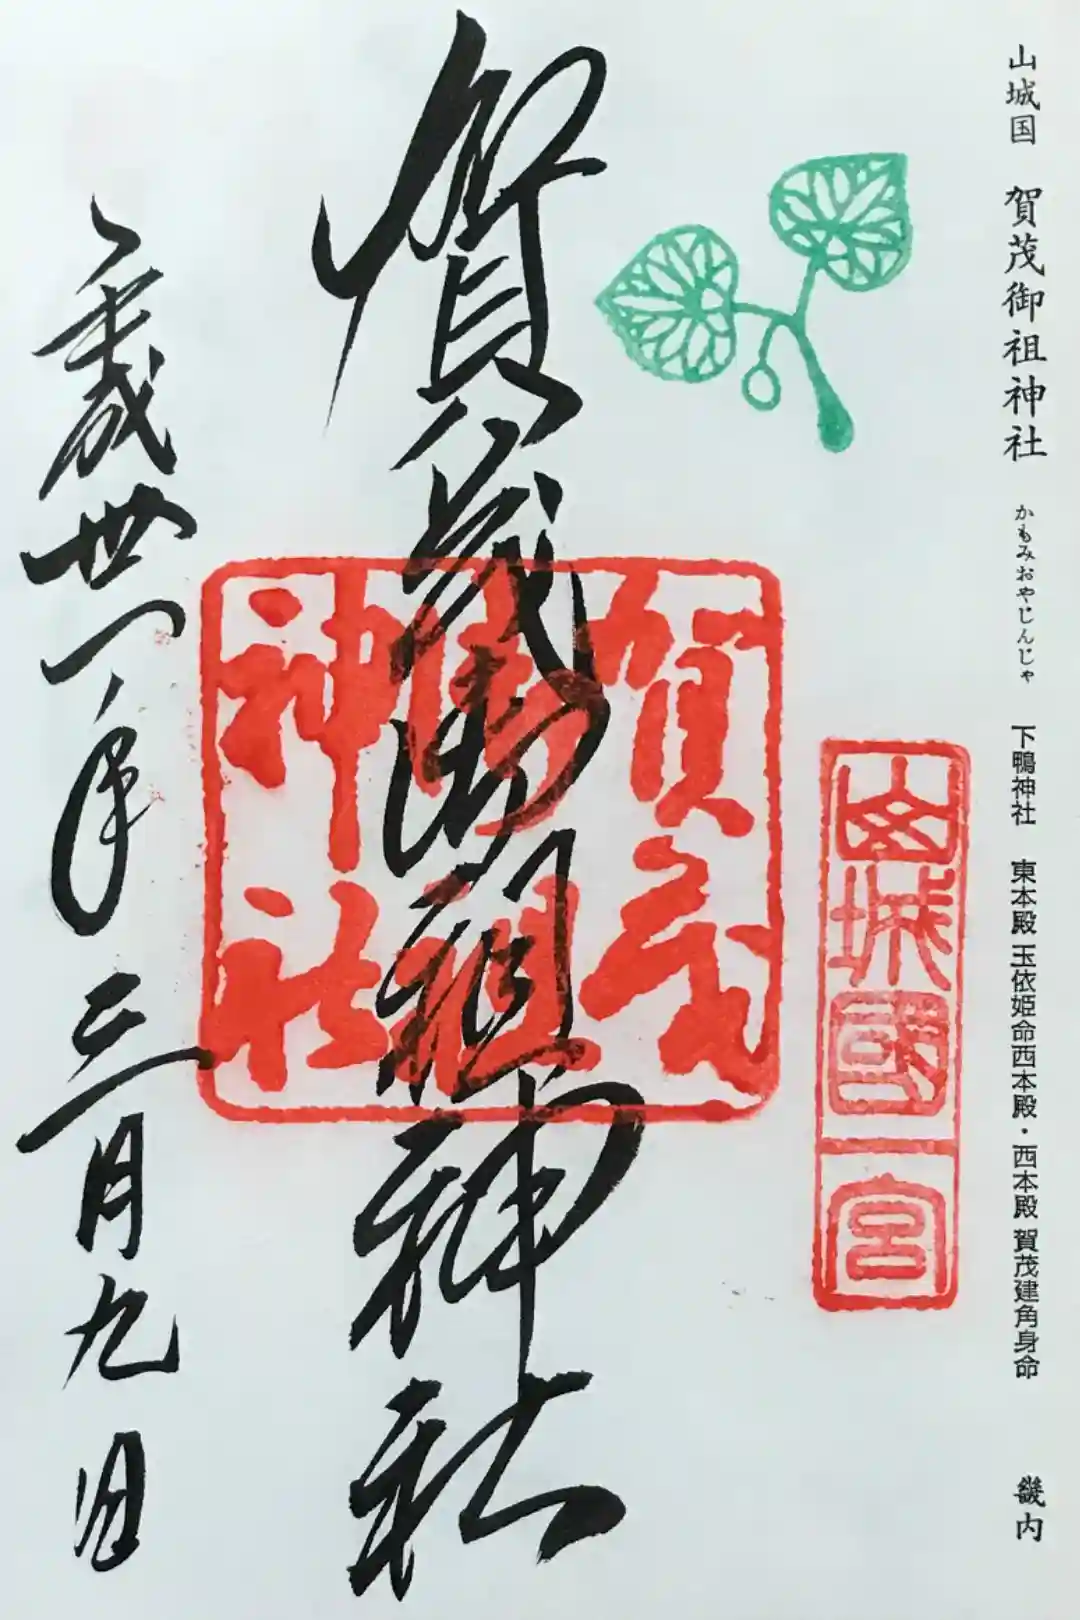 山城国 賀茂御祖神社 かもみおやじんじゃ 下鴨神社 東本殿 玉依姫命西本殿・西本殿 賀茂建角身命 畿内
山城國一宮
賀茂御祖神社
賀茂
御祖
神社
平成卅一年三月九日